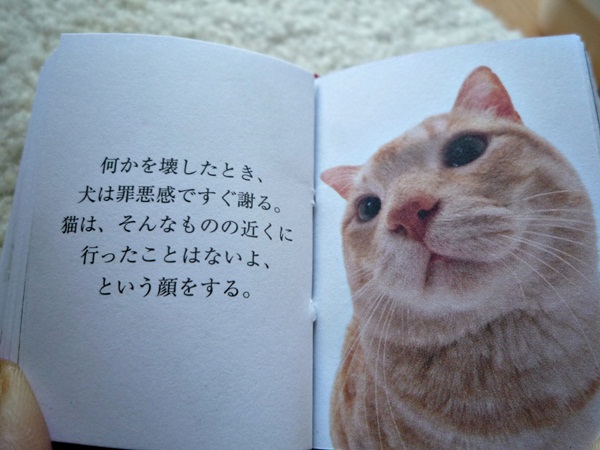 何かを壊したとき、
犬は罪悪感ですぐ謝る。
猫は、そんなものの近くに
行ったことはないよ、
という顔をする。